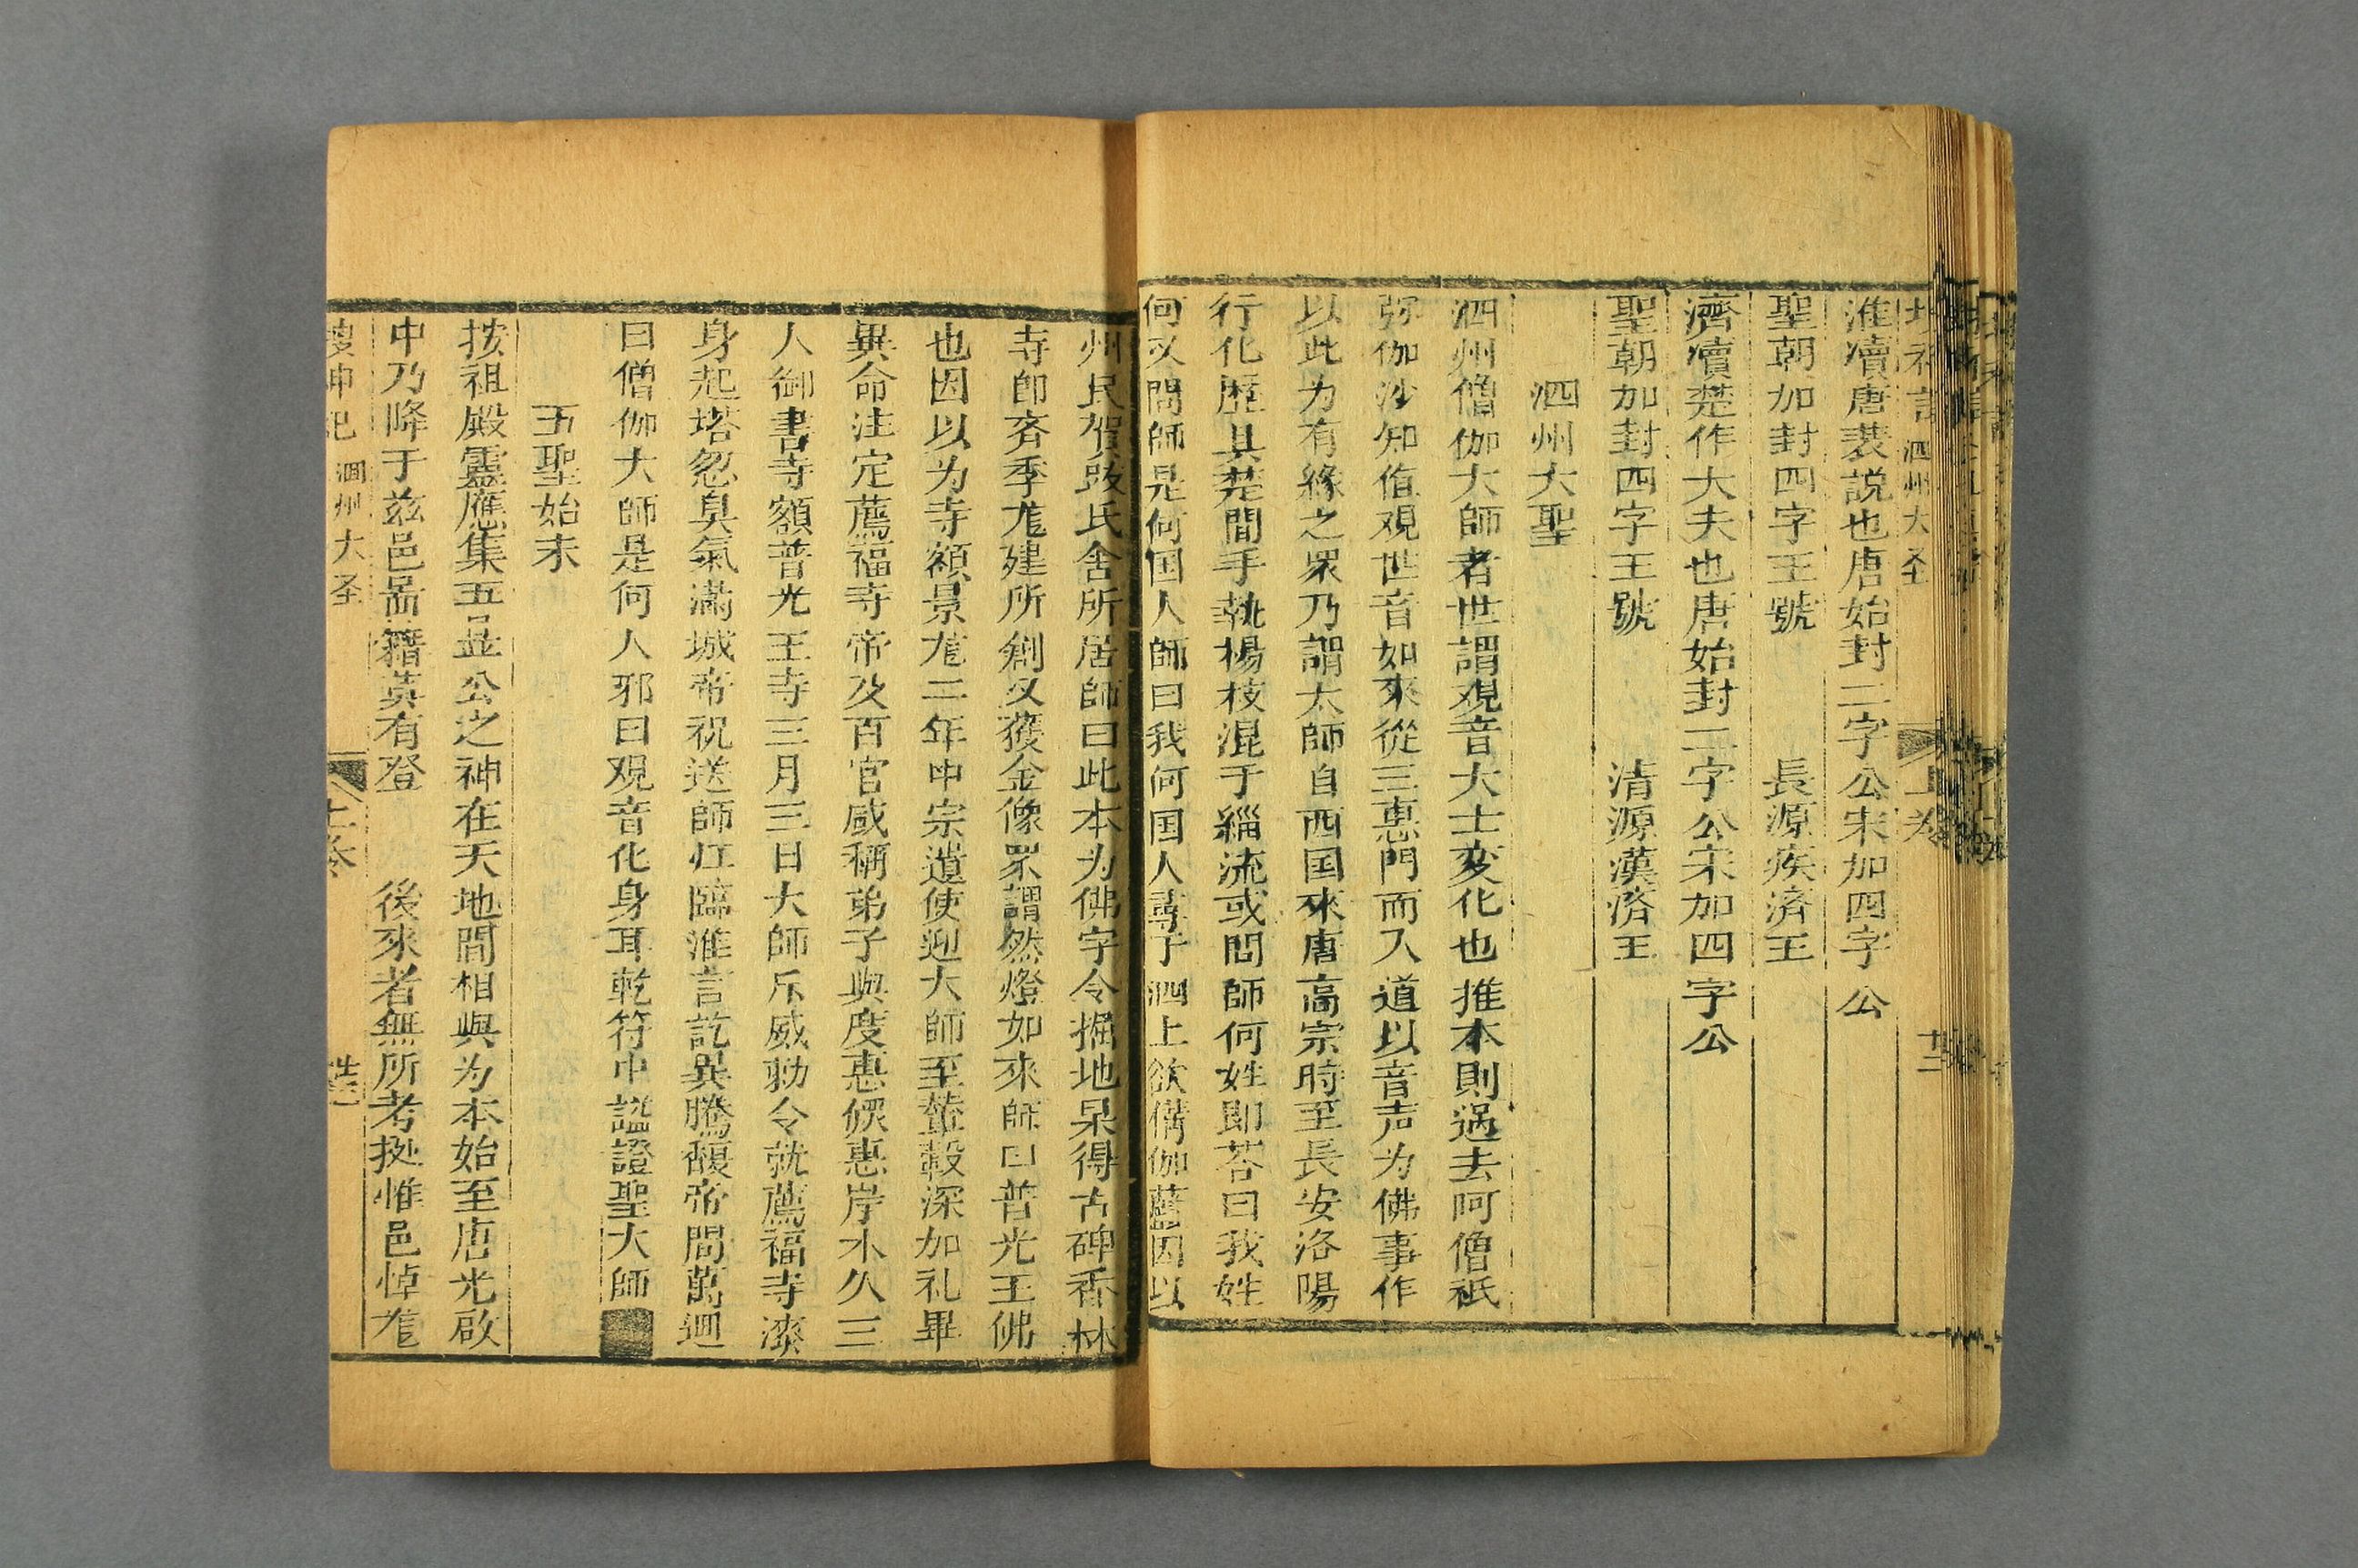 淮瀆唐裴説也唐始封二字公宋加四字公
聖朝加封四字王號 長源疾済王
濟瀆楚作大夫也唐始封二字公宋加四字公
聖朝加封四字王號 清源漢済王
泗州大聖
泗州僧伽大師者世謂观音大士变化也推本則过去阿僧祇
弥伽沙知值观世音如來從三恵門而入道以音声为佛事作
以此为有緣之眾乃謂太師自西国來唐高宗時至長安洛陽
行化歷具楚間手執楊枝混于緇流或問師何姓即荅曰我姓
何又問師是何国人師曰我何国人尋于泗上欲僃伽藍因以
州民賀跋氏舍所居師曰此本为佛宇令掘地果得古碑香林
寺即齐季龙建所創又獲金像眾謂然燈如來師曰普光王佛
也因以为寺額景龙二年中宗遣使迎大師至輦轂深加礼畢
異命注定薦福寺帝及百官咸稱弟子與度恵儼恵岸木久三
人御書寺額普光王寺三月三日大師斥威勅令就薦福寺漆
身起塔忽臭氣滿城帝祝送師归臨淮言訖異騰馥帝問萬迴
曰僧伽大師是何人邪曰观音化身耳乾符中謚證聖大師
五聖始末
按祖殿靈應集五显公之神在天地間相與为本始至唐光啟
中乃降于兹邑啚籍莫有登 後來者無所考㨿惟邑悼龙
搜神記 泗州大圣 上卷